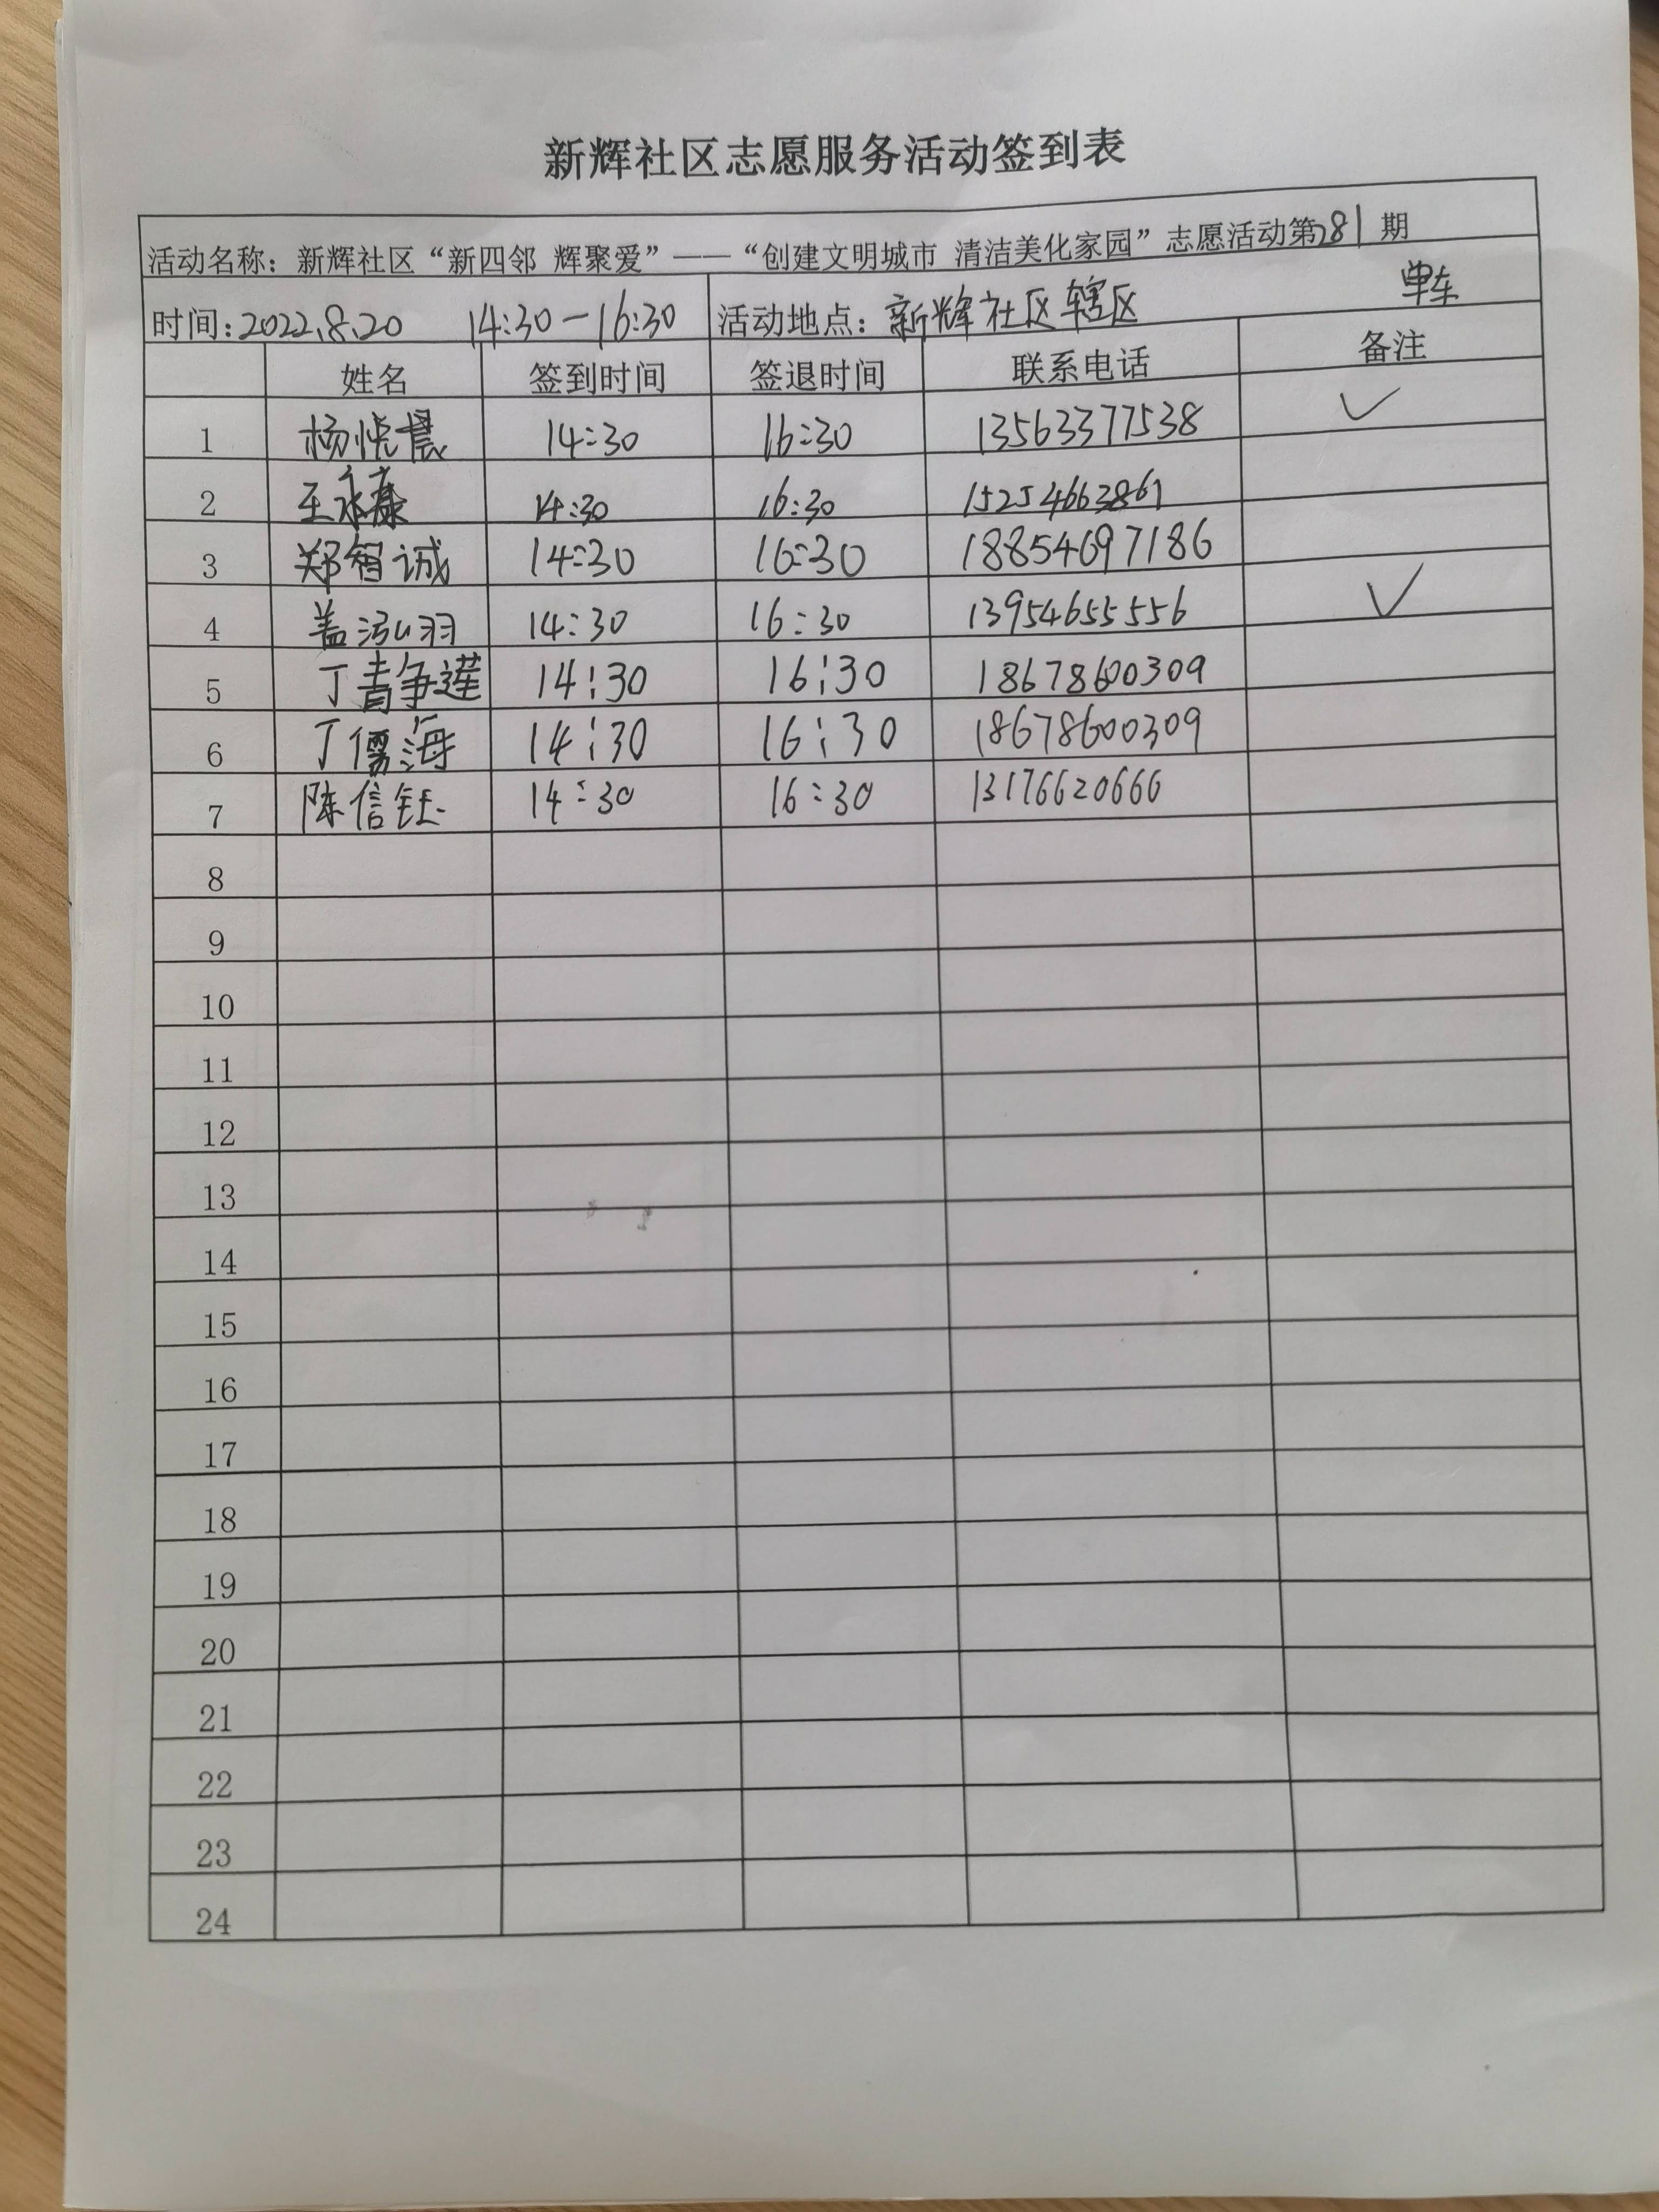 新辉社区志愿服务活动签到表
活动名称：新辉社区“新四邻 辉聚爱”——“创建文明城市 清洁美化家园”志愿活动第281期
时间：2022.8.20 14:30—16:30 活动地点：新辉社区辖区 单车
姓名 签到时间 签退时间 联系电话 备注
1 杨悦晨 14:30 16:30 13563377538 ✓
2 王永康 14:30 16:30 15254663861
3 郑智诚 14:30 16:30 18854697186
4 盖泓羽 14:30 16:30 13954655556 ✓
5 丁青争莲 14:30 16:30 18678600309
6 丁儒海 14:30 16:30 18678600309
7 陈信钰 14:30 16:30 13176620666
8
9
10
11
12
13
14
15
16
17
18
19
20
21
22
23
24